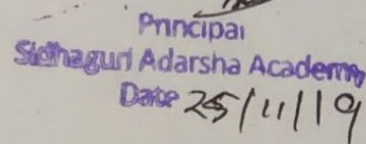 Principal
Sidhaguri Adarsha Academy
Date 25/11/19